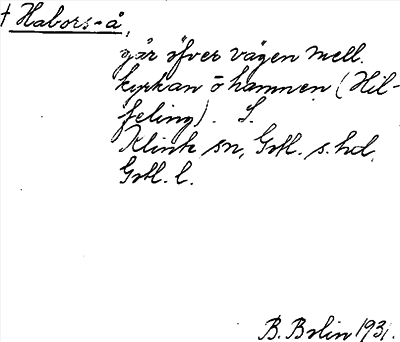 † Habors-å,
går öfver vägen mell.
kyrkan o hamnen (Hil-
feling). S.
Klinte sn, Gotl. s. hd,
Gotl. l.
B. Bolin 1931.